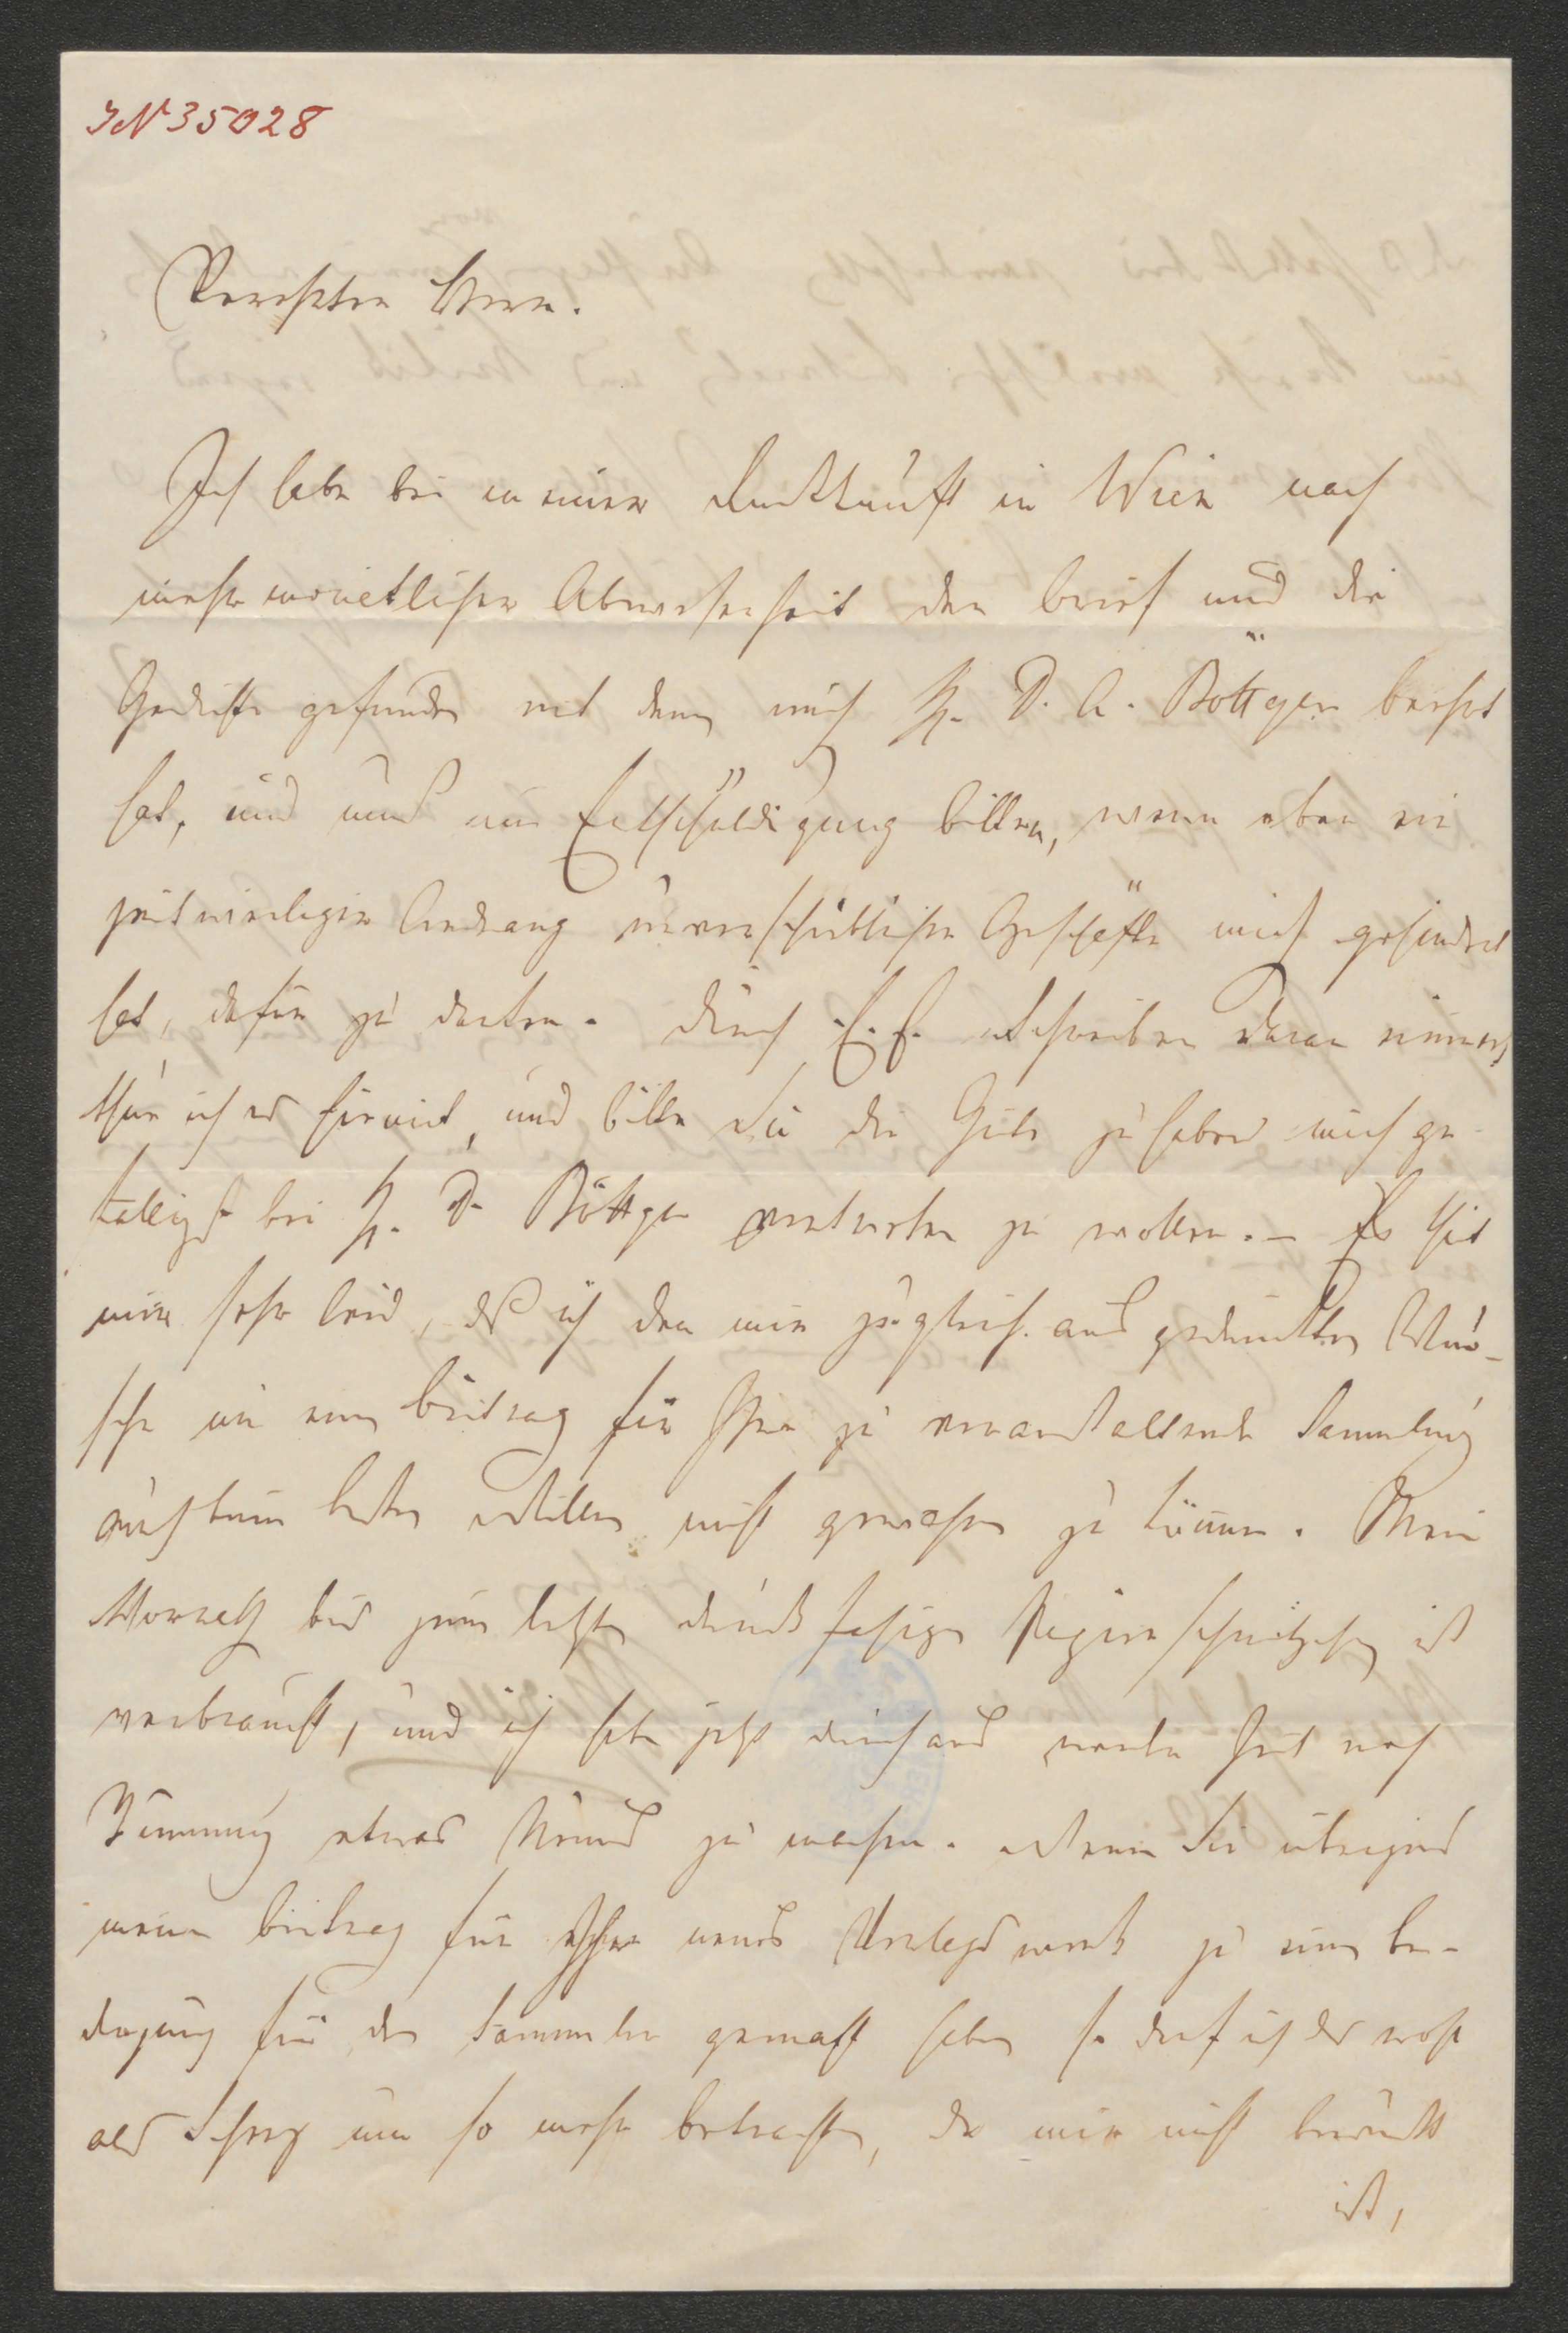 IN 35028
Verehrter Herr.
Ich habe bei meiner Rückkunft in Wien nach
mehrmonatlicher Abwesenheit den Brief und die
Gedichte gefunden mit denen mich H. D. A. Böttger beehrt
hat, und muß um Entschuldigung bitten, wenn eben ein
zeitweiliger Andrang unverschieblicher Geschäfte mich gehindert
hat, dafür zu danken. Durch E. E. Schreiben daran erinnert,
thue ich es hiemit, und bitte Sie die Güte zu haben mich ge-
fälligst bei H. D. Böttger vertreten zu wollen. – Es thut
mir sehr leid, daß ich dem mir zugleich ausgedrückten Wun-
sche um einen Beitrag für Ihre zu veranstaltende Sammlung
auch beim besten Willen nicht gewachsen zu können. Mein
Vorrath bis zum letzten druckfähigen Papierschnitzchen ist
verbraucht, und ich habe jetzt durchaus weder Zeit noch
Stimmung etwas Neues zu machen. Wenn Sie übrigens
meinen Beitrag für Ihr neues Verlagswerk zu einer Be-
dingung für den Sammler gemacht haben so darf ich das wohl
als Scherz um so mehr betrachten, da mir nicht bewußt
ist,